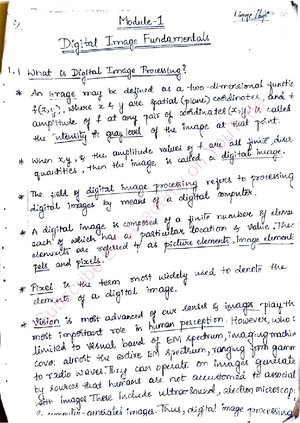 Module-1
Digital Image Fundamentals
1.1 What is Digital Image Processing?
* An image may be defined as a two-dimensional functio
f(x,y), where x & y are spatial (plane) coordinates, and
amplitude of f at any pair of coordinates (x,y) is called
the intensity or gray level of the image at that point.
* When x,y, & the amplitude values of f are all finite, discr
quantities, then the image is called a digital image.
* The field of digital image processing refers to processing
digital images by means of a digital computer.
* A digital image is composed of a finite numbers of eleme
each of which has a particular location & value. These
elements are referred to as picture elements, image element
pels and pixels.
* Pixel is the term most widely used to denote the
elements of a digital image.
* Vision is most advanced of our senses & images play th
most important role in human perception. However, who
limited to visual band of EM spectrum, imaging machin
cover almost the entire EM spectrum, ranging from gamm
to radio waves. They can operate on images generate
by sources that humans are not accustomed to associat
with image. These include ultra-sound, electron microscop
& computer-generated images. Thus, digital image processing